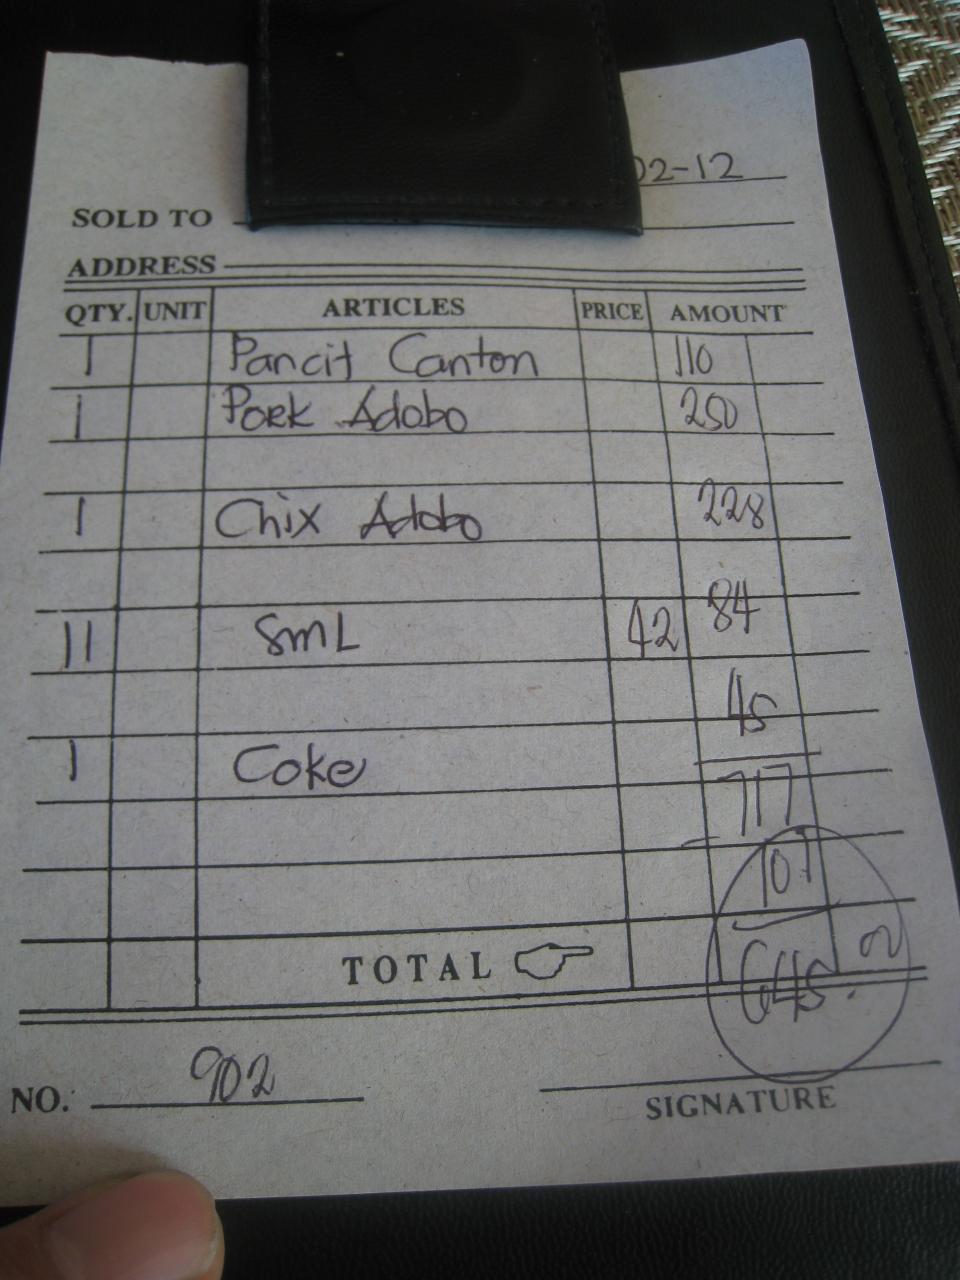 02-12
SOLD TO
ADDRESS
QTY. UNIT ARTICLES PRICE AMOUNT
1 Pancit Canton 110
1 Pork Adobo 250
1 Chix Adobo 228
11 SmL 42 84
45
1 Coke
717
TOTAL 645.
NO. 902
SIGNATURE